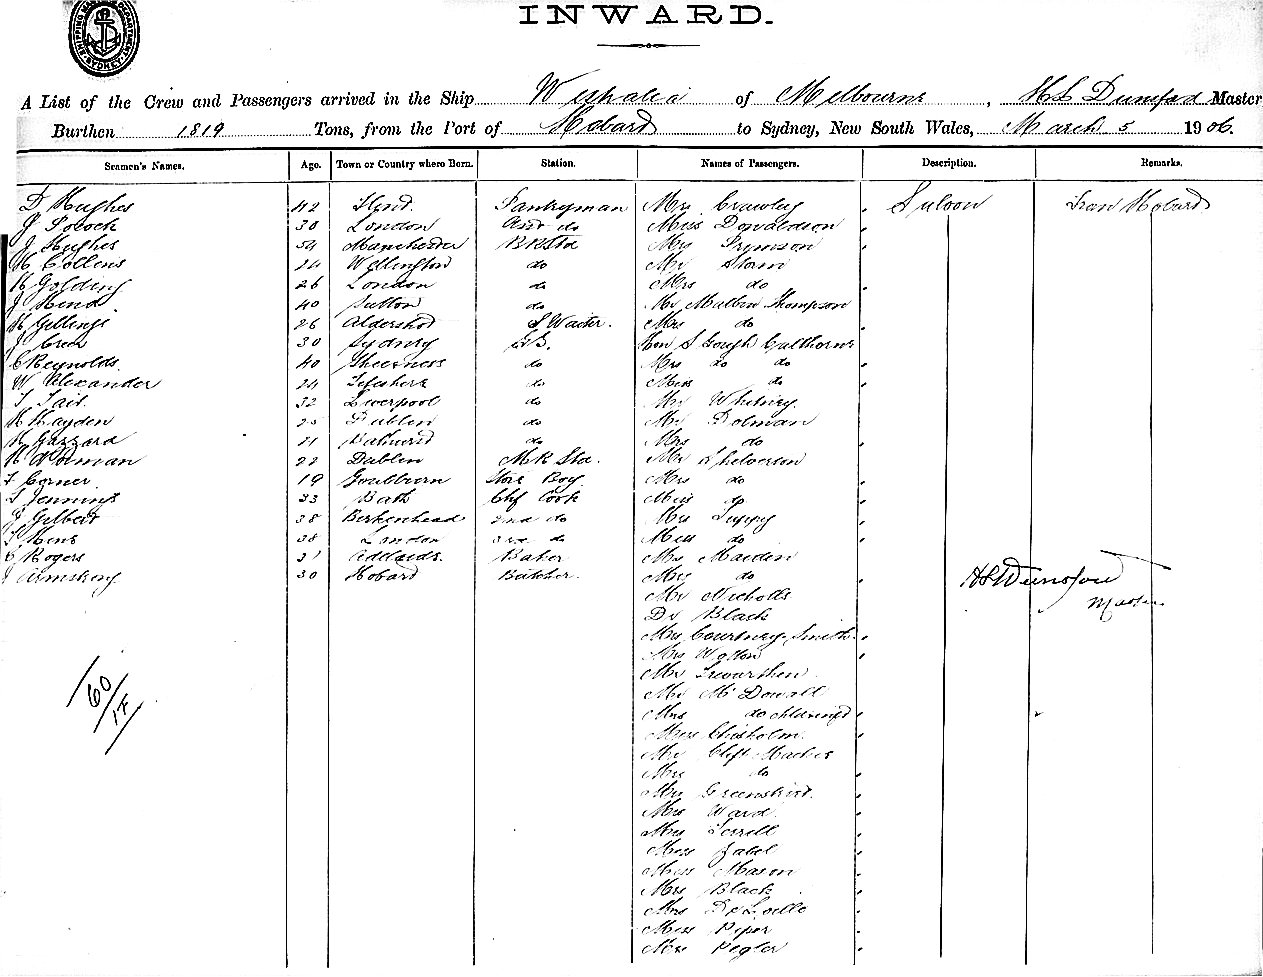 SHIPPING MASTER'S DEPARTMENT SYDNEY
INWARD.
A List of the Crew and Passengers arrived in the Ship Westralia of Melbourne, H S Dunsford Master
Burthen 1819 Tons, from the Port of Hobart to Sydney, New South Wales, March 5 1906.
Seamen's Names. Age. Town or Country where Born. Station. Names of Passengers. Description. Remarks.
D Hughes 42 Pantryman Mrs Crawley Saloon From Hobart
J Pocock 30 London Asst do Miss Donaldson "
J Hughes 54 Manchester BR Std "
H Collens 24 Wellington do Mr "
H Golding 26 London do Mrs do "
J 40 Sutton do Mr Mullen Thompson "
H Gillings 26 Aldershot S Waiter. Mrs do "
J Green 30 Sydney Hon S Gough Calthorpe
C Reynolds. 40 Sheerness do Mrs do do "
W Alexander 24 do Miss do "
T Tait 32 Liverpool do Mr Whitney. "
H Hayden 25 Dublin do Mr Dolman "
H Gazzard 21 Bathurst do Mrs do "
H Norman 22 Dublin Std. Mr "
Corner. 19 Goulburn Store Boy Mrs do "
Jennings 33 Bath Chf Cook Miss do "
J Gilbert 38 Birkenhead 2nd do Mrs "
38 London 3rd do Miss do "
C Rogers 31 Adelaide. Baker Maiden "
Armstrong 30 Hobart Butcher. do "
Mr Nicholls
Dr Black
H S Dunsford
Master
Mrs Courtney Smith "
Mrs "
Mr
Mr McDowall
Mrs do "
Miss Chisholm. "
Mr Clift "
Mrs do "
"
Mrs Ward. "
Terrell "
Miss "
Miss Mason "
Mrs Black "
Mrs "
Miss Piper "
Pegler "
60/14